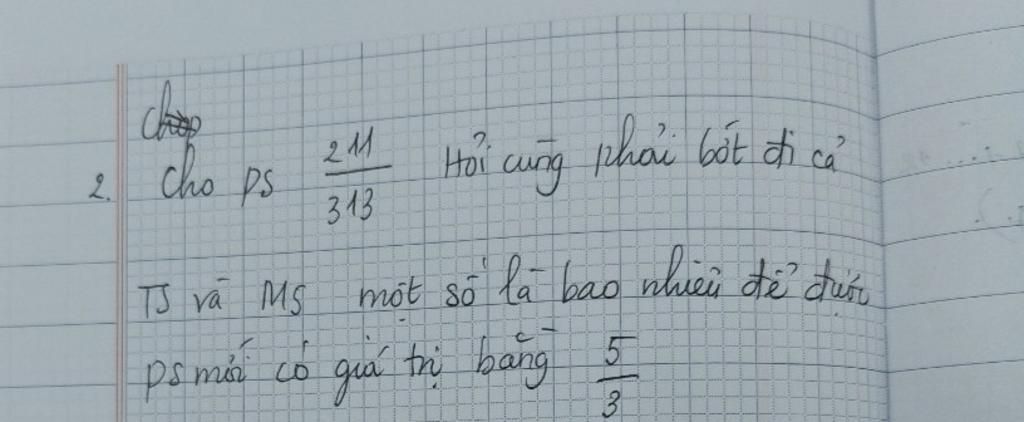 Chop
2. Cho ps 211/313 Hỏi cùng phải bớt đi cả
TS và MS một số là bao nhiêu để được
ps mới có giá trị bằng 5/3